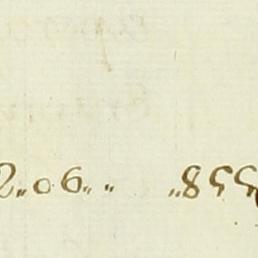 2„06„ „ „855